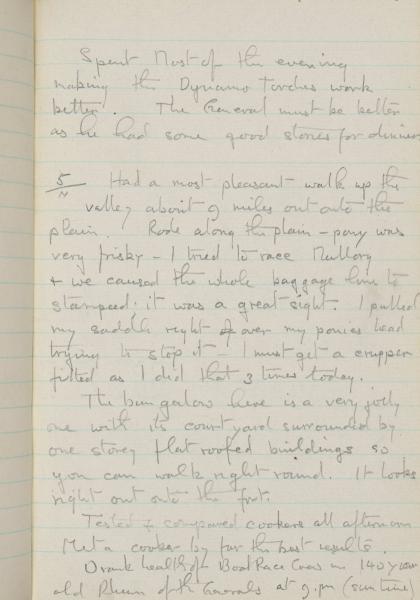 Spent Most of the evening
making the Dynamo Torches work
better. The General must be better
as he had some good stories for dinner
5/IV Had a most pleasant walk up the
valley about 9 miles out onto the
plain. Rode along the plain - pony was
very frisky - I tried to race Mallory
& we caused the whole baggage line to
stampede: it was a great sight. I pulled
my saddle right over my ponies head
trying to stop it - I must get a crupper
fitted as I did that 3 times today.
The bungalow here is a very jolly
one with its courtyard surrounded by
one storey flat roofed buildings so
you can walk right round. It looks
right out onto the fort.
Tested & compared cookers all afternoon
Meta cooker by far the best results.
Drank health of Boat Race Crews in 140 year
old Rhum of the Generals at 9. pm (sun time)